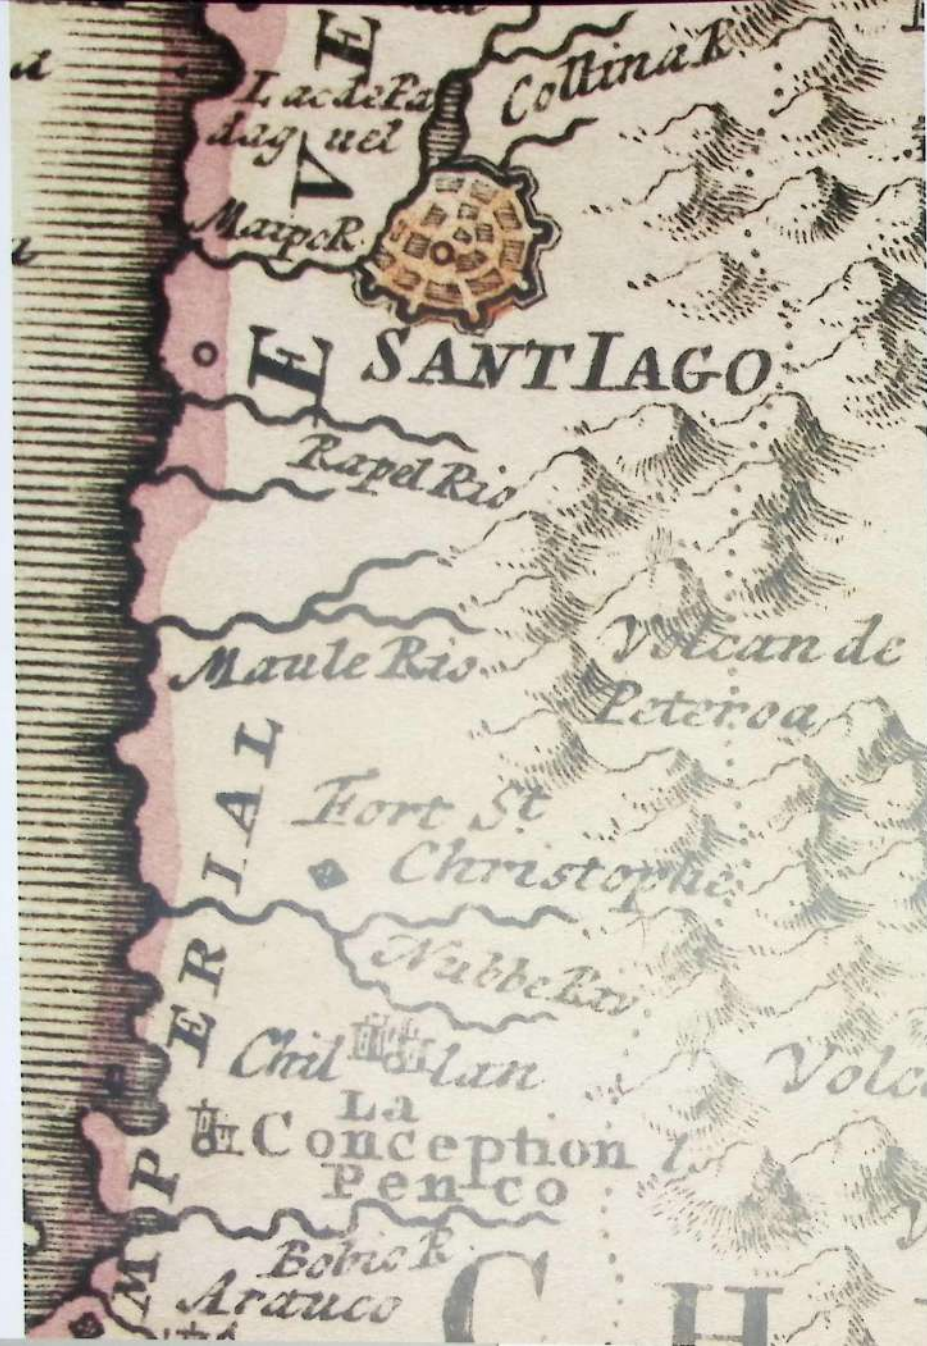 Collina R
Lac de Pa
dag uel
Maipo R.
SANTIAGO
Rapel Rio
Maule Rio
Volcan de
Peteroa
Fort St
Christophe
Nubbe Riv
Chil lan
La
Conception
Penco
Bobio R.
Arauco
IMPERIAL
E V E
C H
Volc